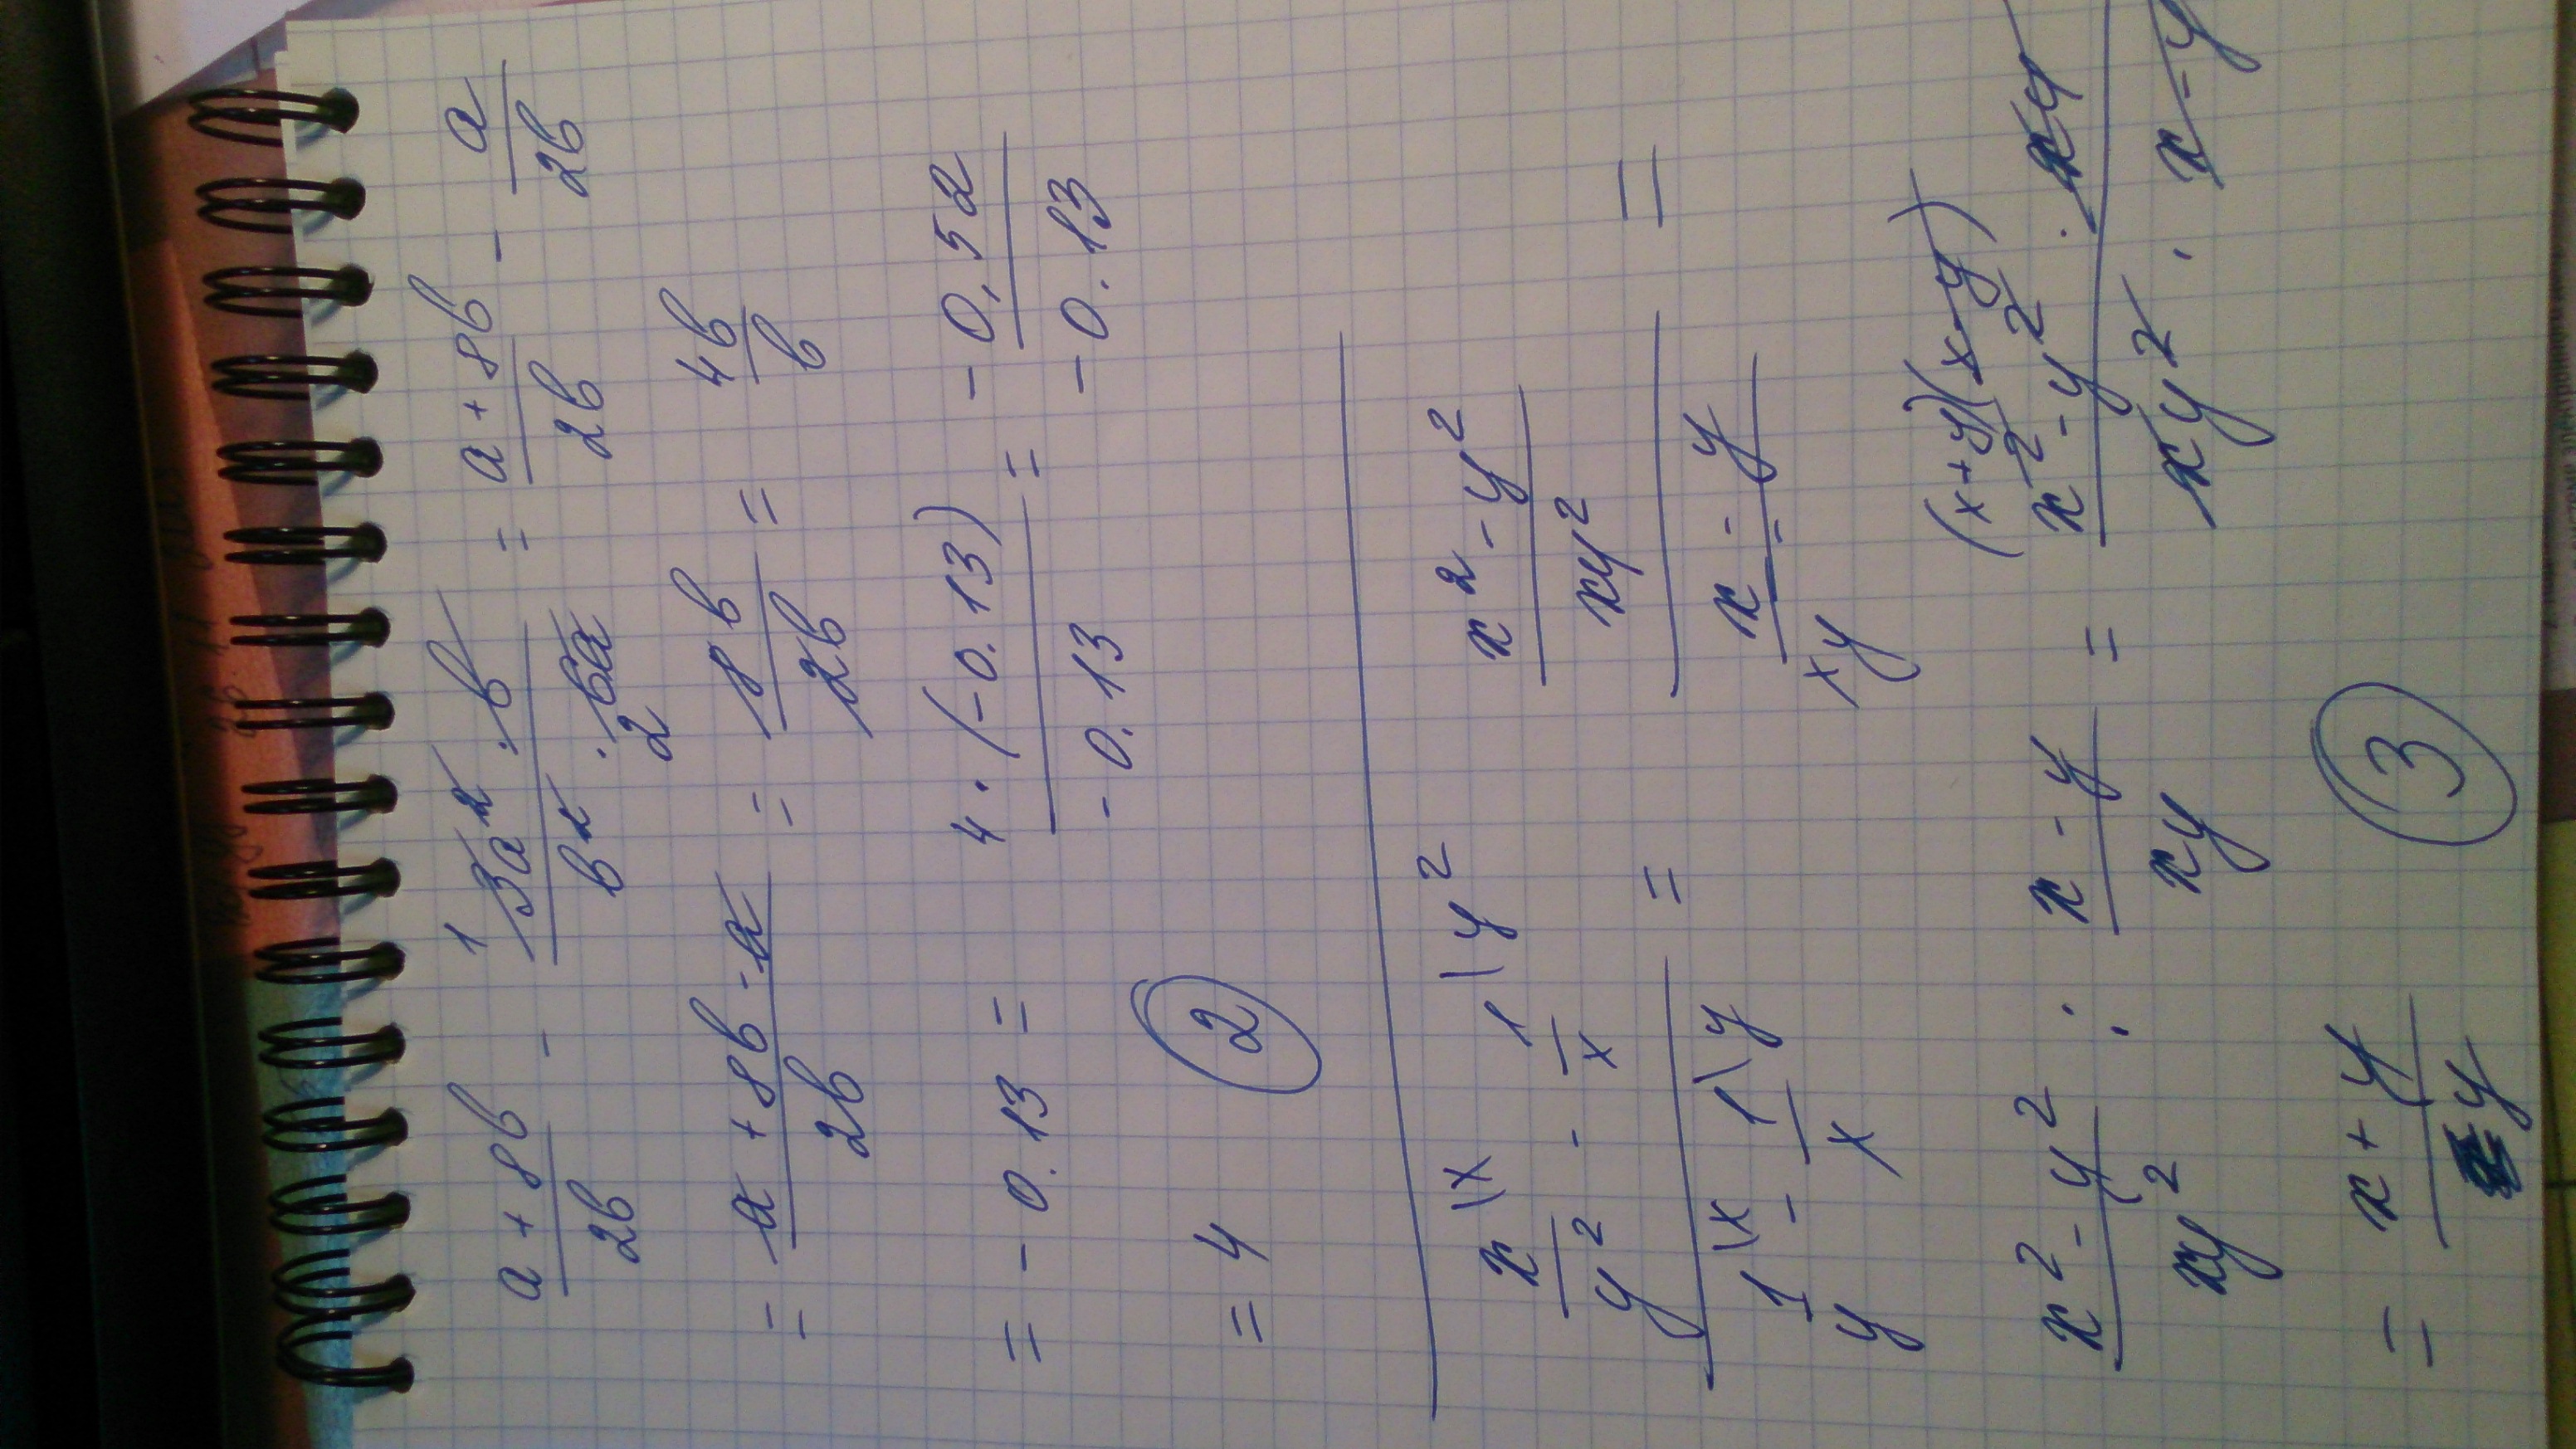 (a + 8b)/(2b) - (¹3a² · b)/(b² · 6a 2) = (a + 8b)/(2b) - a/(2b)
= (a + 8b - a)/(2b) = 8b/(2b) = 4b/b
= - 0.13 = (4 · (-0.13))/(-0.13) = (-0,52)/(-0.13)
= 4 (2)
(x/y² \x - 1/x \y²)/(1/y \x - 1/x \y) = ((x² - y²)/(xy²))/((x - y)/(xy)) =
(x+y)(x-y)
(x² - y²)/(xy²) : (x - y)/(xy) = (x² - y² · xy)/(xy² · x - y)
= (x + y)/y (3)